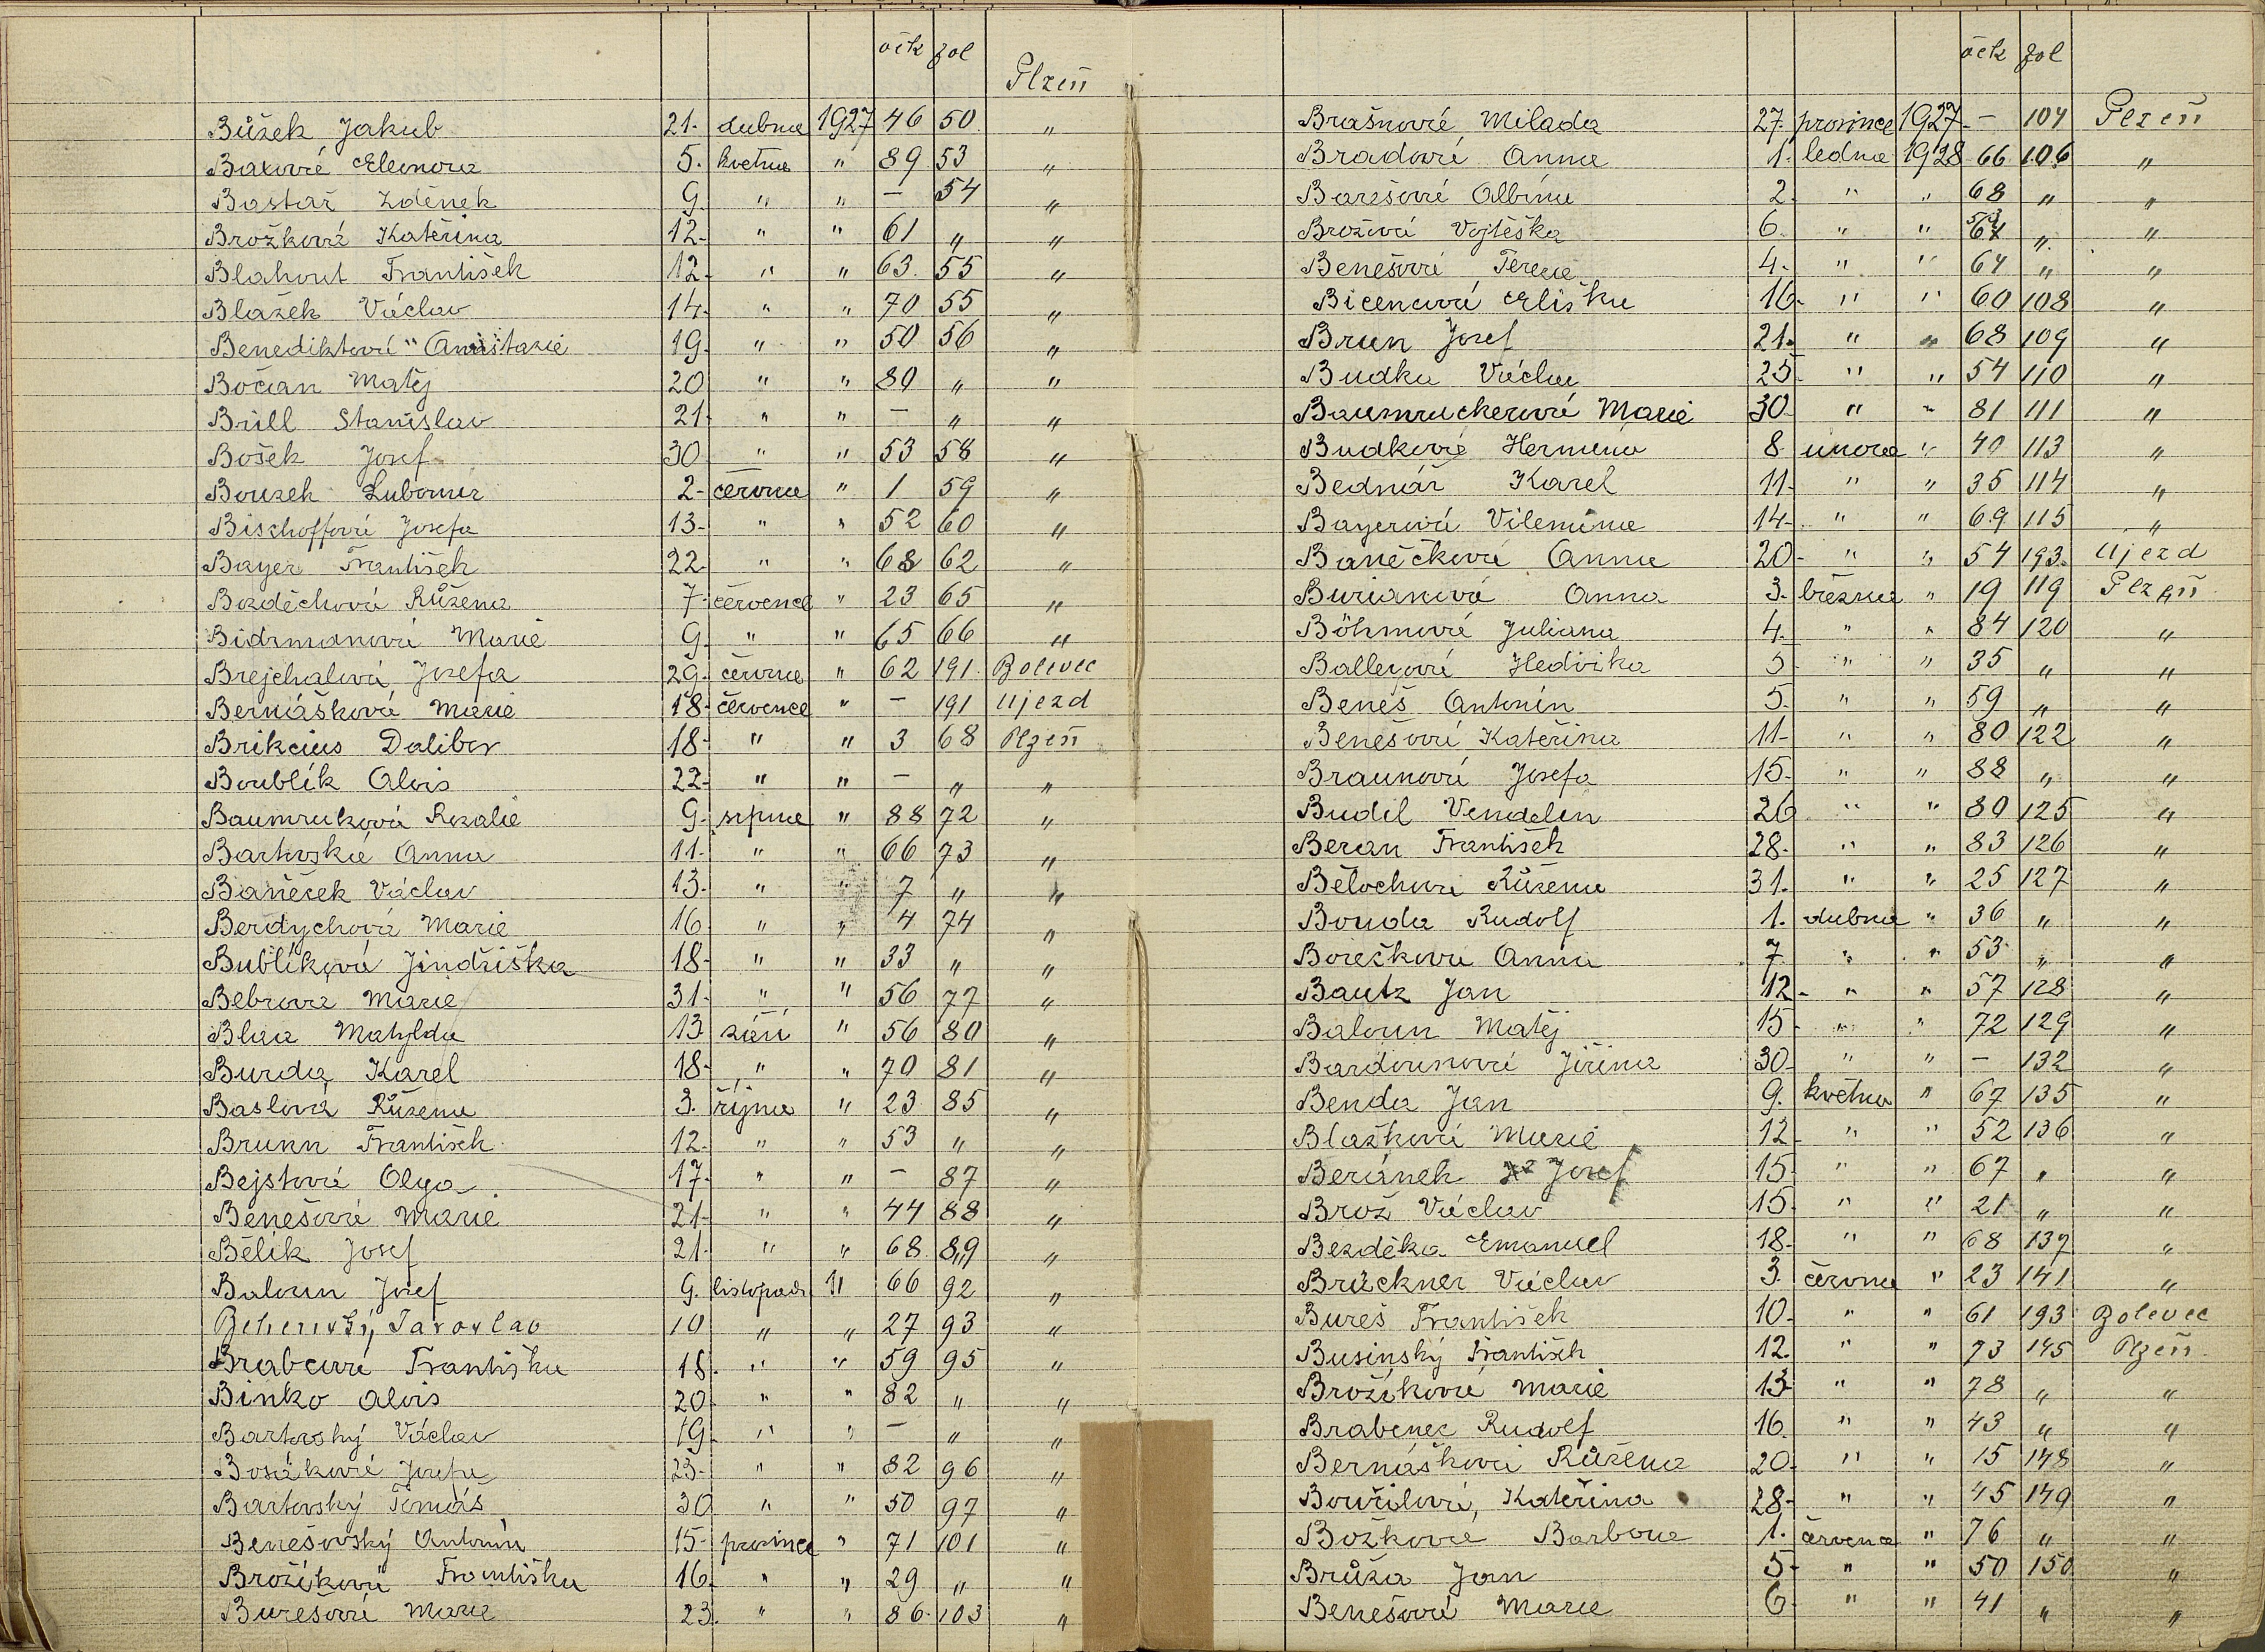 očk fol
Plzeň
Bůžek Jakub 21. dubna 1927 46 50 "
Baxová Eleonora 5. května " 89 53 "
Bastař Zdeněk 9. " " — 54 "
Brožková Kateřina 12. " " 61 " "
Blahout František 12. " " 63 55 "
Blažek Václav 14. " " 70 55 "
Benediktová Anastazie 19. " " 50 56 "
Bočan Matěj 20 " " 80 " "
Brill Stanislav 21. " " — " "
Bošek Josef 30 " " 53 58 "
Bouzek Lubomír 2. června " 1 59 "
Bischoffová Josefa 13. " " 52 60 "
Bayer František 22. " " 68 62 "
Bezděchová Růžena 7. července " 23 65 "
Bidrmanová Marie 9. " " 65 66 "
Brejchalová Josefa 29. června " 62 191 Bolevec
Bernášková Marie 18. července " — 191 Ujezd
Brikcius Dalibor 18. " " 3 68 Plzeň
Boublík Alois 22. " " — " "
Baumruková Rozalie 9. srpna " 88 72 "
Bartovská Anna 11. " " 66 73 "
Baněček Václav 13. " " 7 " "
Berdychová Marie 16 " " 4 74 "
Bublíková Jindřiška 18. " " 33 " "
Bebrová Marie 31. " " 56 77 "
Blaa Matylda 13 září " 56 80 "
Burda Karel 18. " " 70 81 "
Baslová Růžena 3. října " 23 85 "
Brunn František 12. " " 53 " "
Bejstová Olga 17. " " — 87 "
Benešová Marie 21. " " 44 88 "
Bělík Josef 21. " " 68 89 "
Baloun Josef 9. listopadu " 66 92 "
Jaroslav 10 " " 27 93 "
Brabcová Františka 18. " " 59 95 "
Binko Alois 20 " " 82 " "
Bartovský Václav 19. " " — " "
Bosáková Josefa 23. " " 82 96 "
Bartovský Tomáš 30 " " 50 97 "
Benešovský Antonín 15. prosince " 71 101 "
Brožíková Františka 16. " " 29 " "
Burešová Marie 23. " " 86 103 "
očk fol
Brašnová Milada 27. prosince 1927 — 104 Plzeň
Bradová Anna 1. ledna 1928 66 106 "
Barešová Albína 2. " " 68 " "
Brožová Vojtěška 6. " " " "
Benešová Terezie 4. " " 64 " "
Bicencová Eliška 16. " " 60 108 "
Brun Josef 21. " " 68 109 "
Budka Václav 25. " " 54 110 "
Baumruckerová Marie 30. " " 81 111 "
Budková Hermína 8. února " 40 113 "
Bednář Karel 11. " " 35 114 "
Bayerová Vilemína 14. " " 69 115 "
Baněčková Anna 20. " " 54 193 Ujezd
Burianová Anna 3. března " 19 119 Plzeň
Böhmová Juliana 4. " " 84 120 "
Ballerová Hedvika 5. " " 35 " "
Beneš Antonín 5. " " 59 " "
Benešová Kateřina 11. " " 80 122 "
Braunová Josefa 15. " " 88 " "
Budil Vendelín 26 " " 80 125 "
Beran František 28. " " 83 126 "
Bělochová Růžena 31. " " 25 127 "
Bouda Rudolf 1. dubna " 36 " "
Borečková Anna 7. " " 53 " "
Bautz Jan 12. " " 57 128 "
Baloun Matěj 15. " " 72 129 "
Bardounová Jiřina 30. " " — 132 "
Benda Jan 9. května " 67 135 "
Blažková Marie 12 " " 52 136 "
Beránek Josef 15. " " 67 " "
Brož Václav 15. " " 21 " "
Bezděka Emanuel 18. " " 68 137 "
Brückner Václav 3. června " 23 141 "
Bureš František 10. " " 61 193 Bolevec
Businský František 12. " " 73 145 Plzeň
Brožíková Marie 13 " " 78 " "
Brabenec Rudolf 16. " " 43 " "
Bernášková Růžena 20. " " 15 148 "
Bouřilová, Kateřina 28. " " 45 149 "
Božková Barbora 1. července " 76 " "
Brůža Jan 5. " " 50 150 "
Benešová Marie 6 " " 41 " "